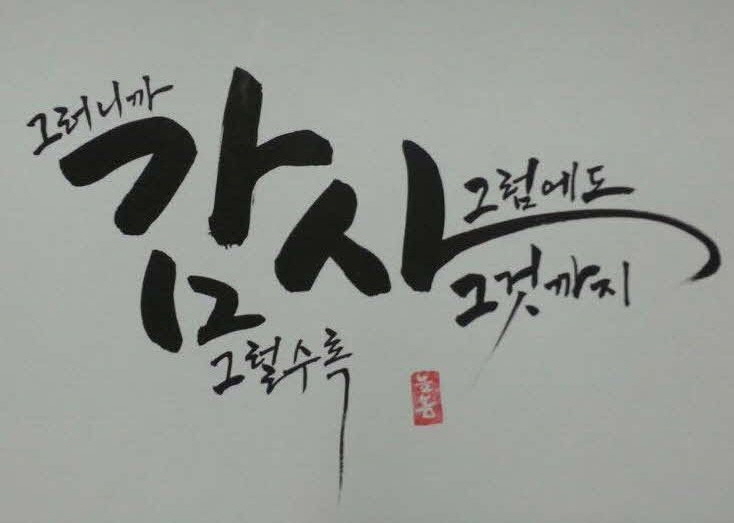 그러니까
감사
그럼에도
그것까지
그럴수록
늘봄